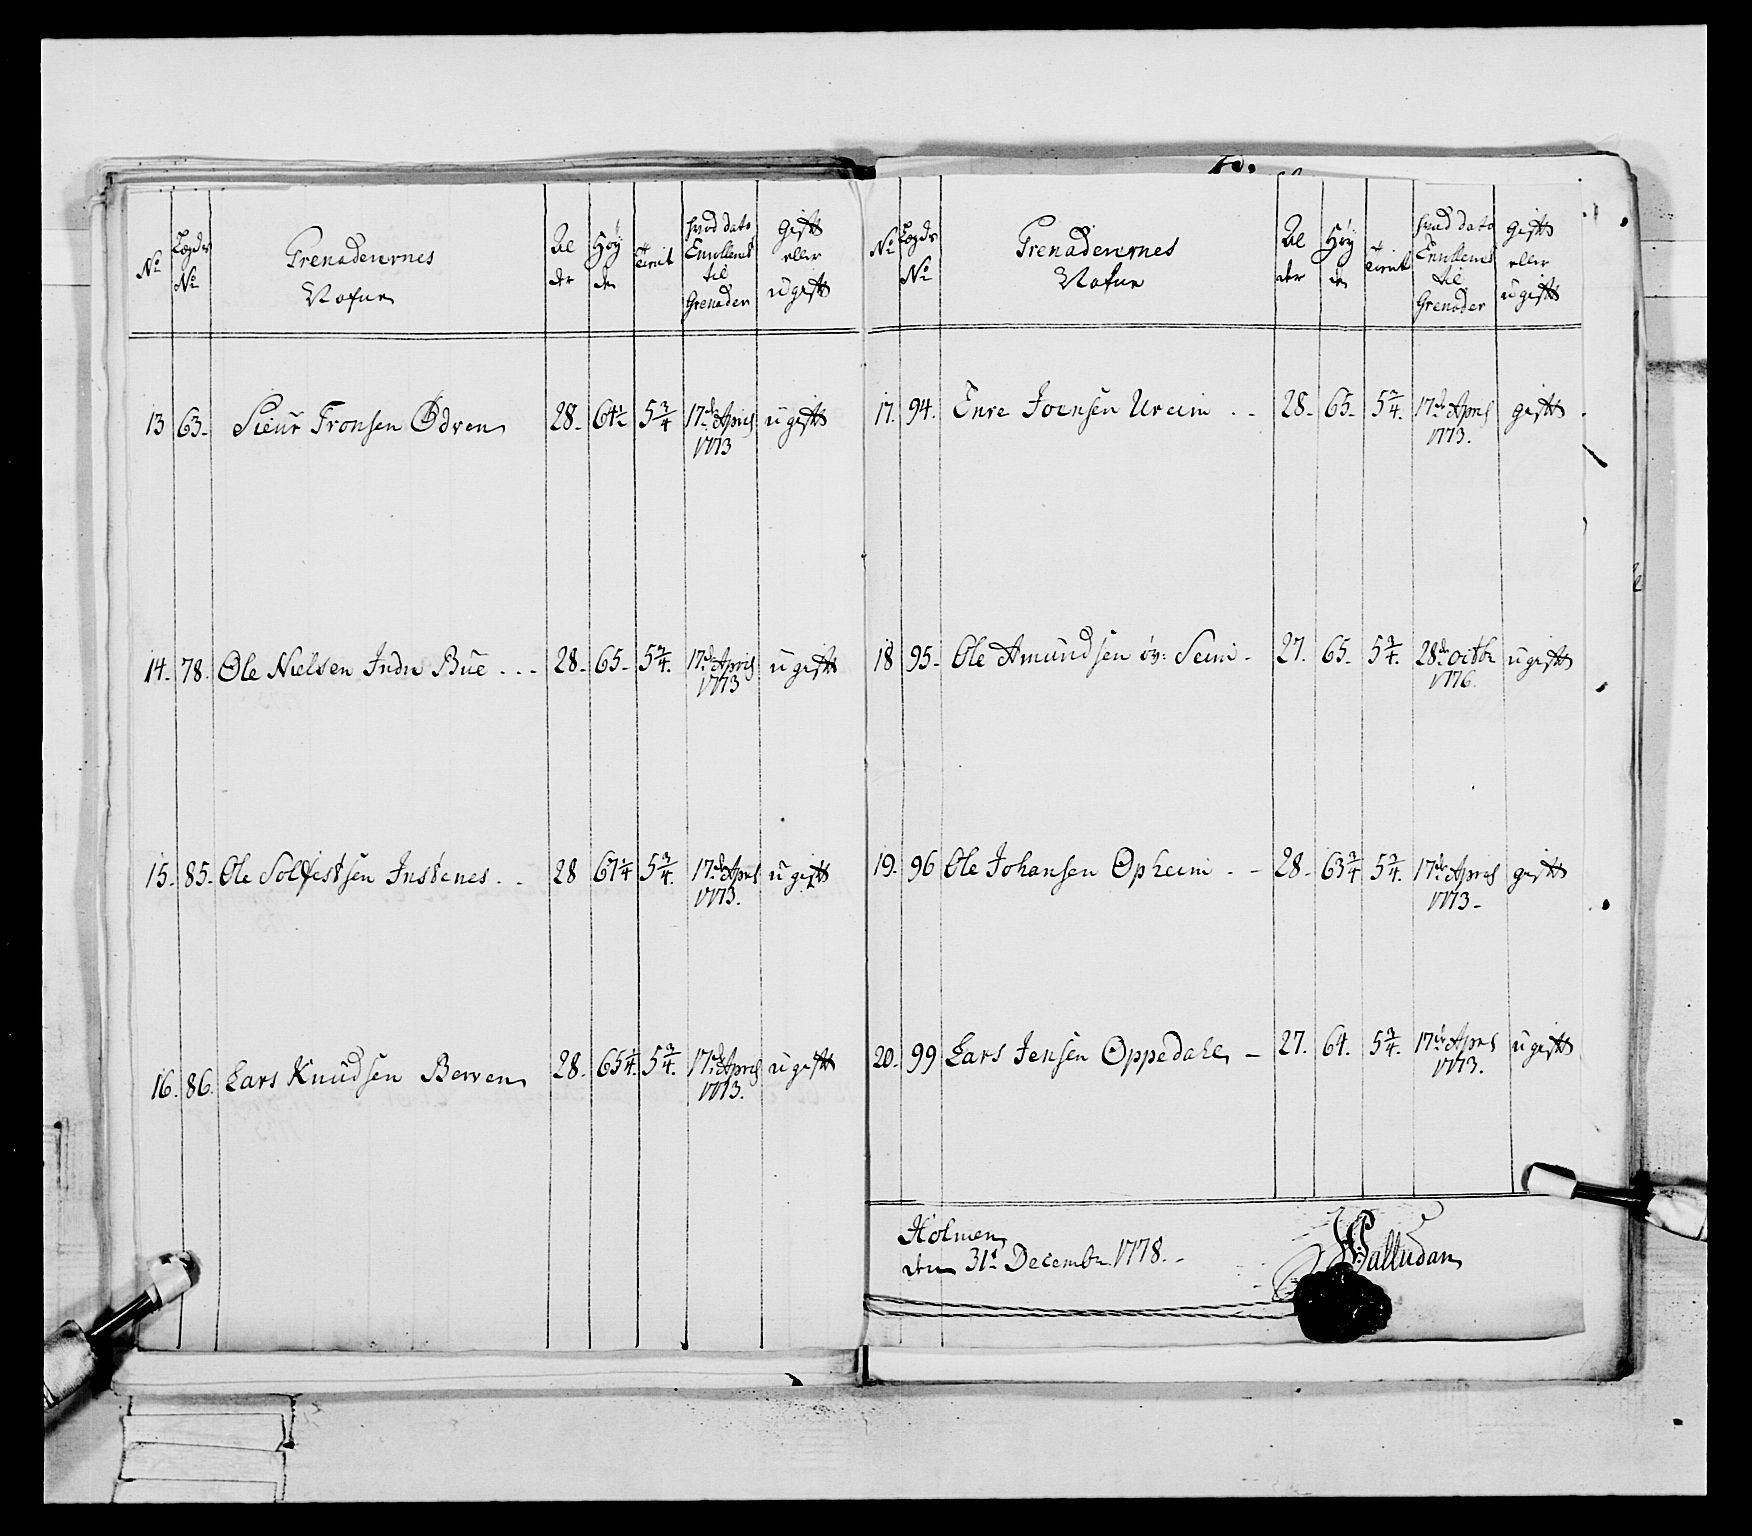 No | Lægds No | Grenadeurnes Nafne | Alder | Høyden | Tienist | hvad dato Enrulleret til Grenader | gift eller ugift
13 | 63- | Siur Tronsen Ødven | 28- | 64½ | 5¾ | 17de April 1773 | ugift
14. | 78. | Ole Nielsen Indre Bue | 28- | 65- | 5¾. | 17de April 1773 | ugift
15. | 85- | Ole Solfestsen Instenes | 28 | 67¼ | 5¾. | 17de April 1773. | ugift
16. | 86. | Lars Knudsen Berven | 28. | 65¼. | 5¾. | 17de April 1773. | ugift
No | Lægds No | Grenadeurnes Nafne | Alder | Høyden | Tienist | hvad dato Enrulleret til Grenader | gift eller ugift
17. | 94. | Enre Joensen Ureim | 28- | 65- | 5¾. | 17de April 1773. | gift
18 | 95- | Ole Amundsen øv: Seim | 27. | 65- | 5¾. | 28de octbr 1776. | ugift
19. | 96 | Ole Johansen Opheim | 28- | 63¾ | 5¾. | 17de April 1773- | gift
20. | 99 | Lars Jensen Oppedahl | 27. | 64. | 5¾. | 17de April 1773. | ugift
Holmen
den 31te December 1778.
Palludan